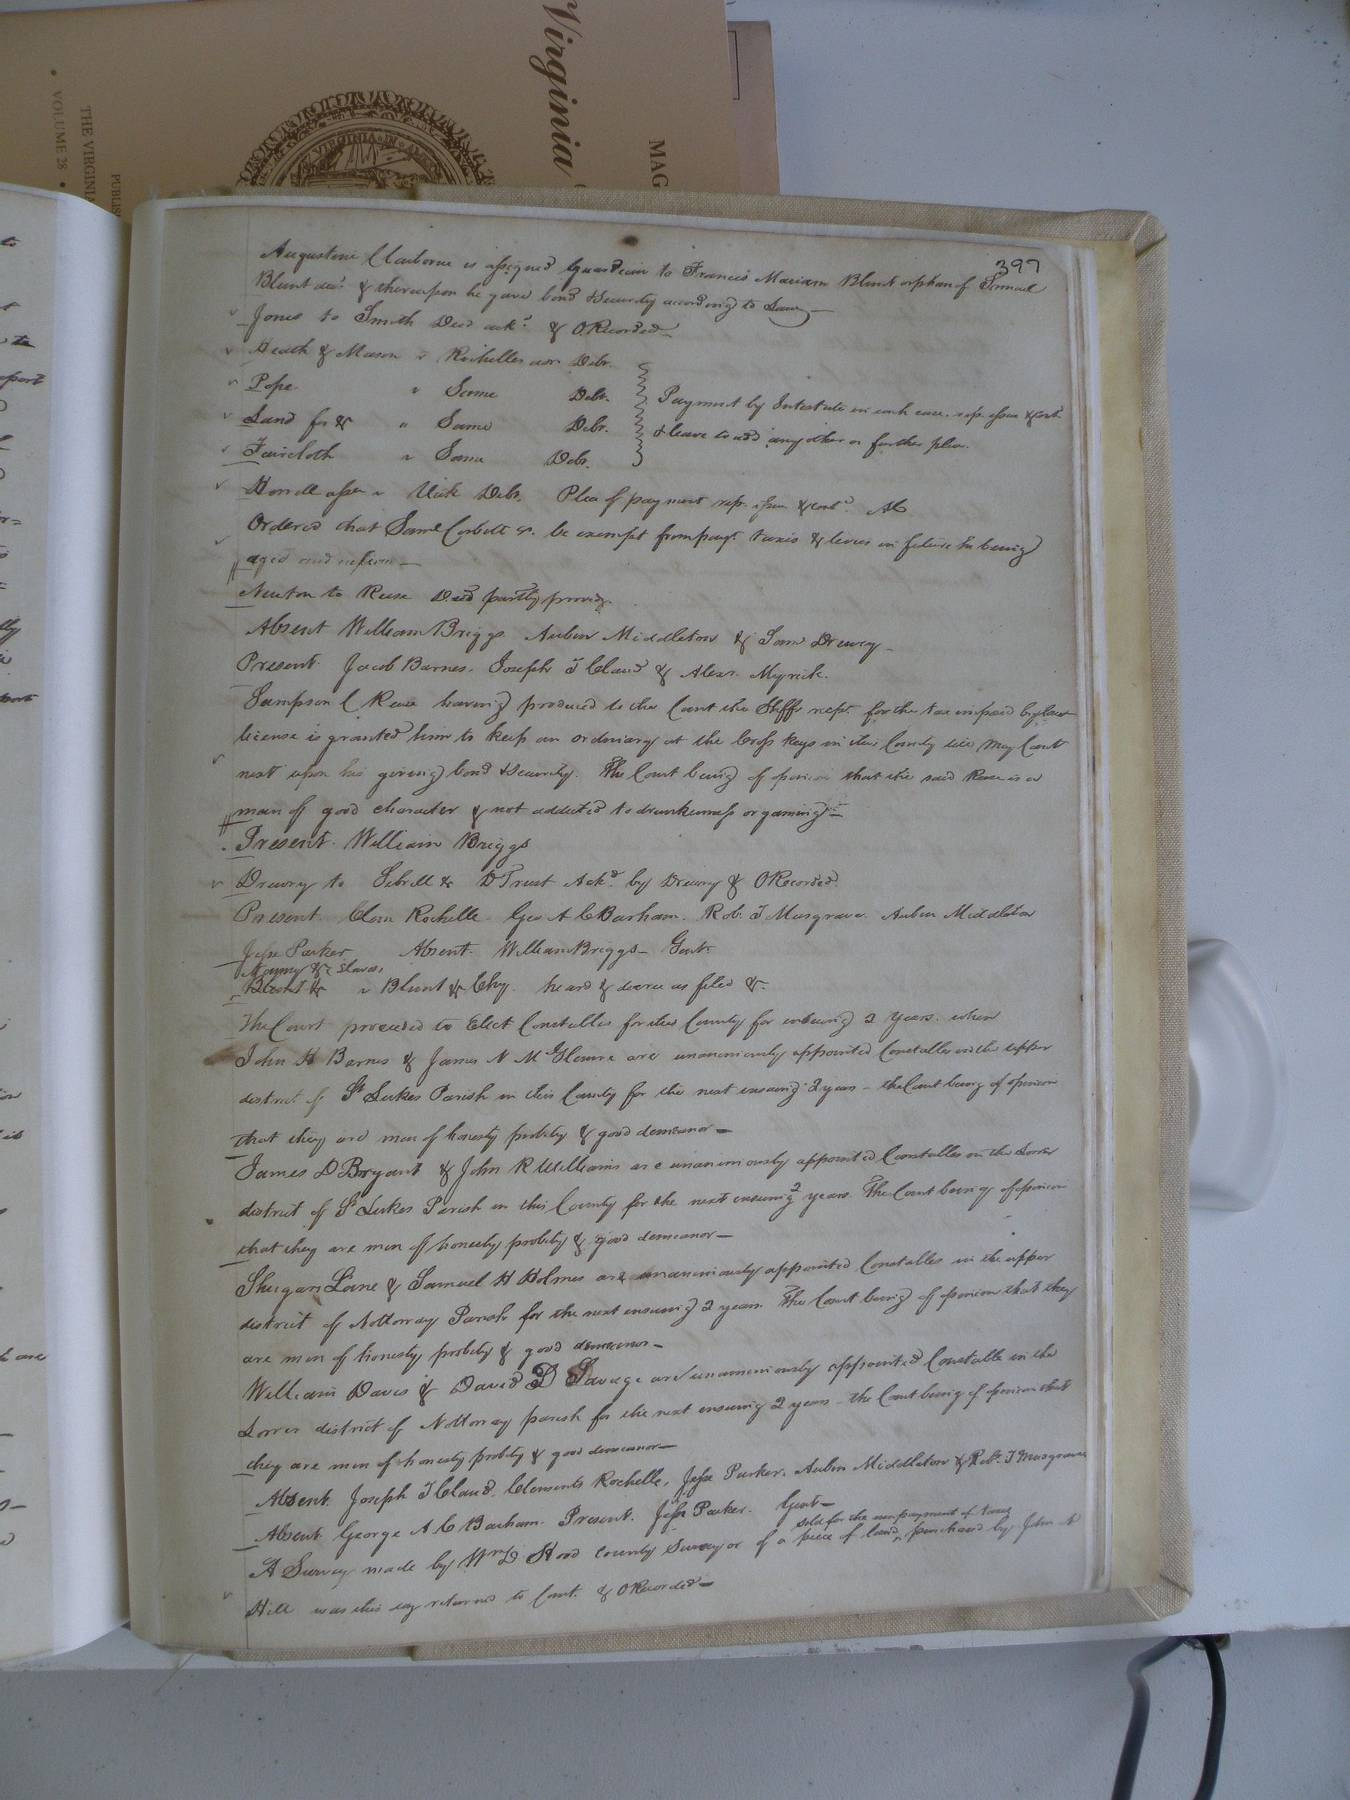 Virginia
MAG
VIRGINIA
THE VIRGINIA
VOLUME 28
PUBLIS
397
Augustine Claiborne is assigned Guardian to Francis Mariam Blunt orphan of Samuel
Blunt decd & thereupon he gave bond & security according to Law
Jones to Smith Deed ackd & ORecorded
Heath & Mason v Rochelles Debt.
Pope v Same Debt.
Land for & v Same Debt.
Faircloth v Same Debt.
Payment by Intestate in each case. rep. issue & contd
& leave to add any other or further plea.
v Vick Debt. Plea of payment rep. issue & contd.
Ordered that Saml Corbett Sr. be exempt from payt taxes & levies in future he being
aged and infirm
Newton to Reese Deed partly proved
Absent William Briggs Aubin Middleton & Saml Drewry
Present Jacob Barnes. Joseph T Claud & Alexr. Myrick.
Sampson C Reese having produced to the Court the Shffs rept. for the tax imposed by law
license is granted him to keep an ordinary at the Cross Keys in this County till May Court
next upon his giving bond & security. The Court being of opinion that the said Reese is a
man of good character & not addicted to drunkenness or gaming
Present William Briggs
Drewry to Sebrell &c D Trust Ackd. by Drewry & ORecorded
Present Clem Rochelle Geo A C Barham. Rob. T Musgrave. Aubin Middleton
Jesse Parker Absent. William Briggs Gent.
&c slaves
Blunt &c v Blunt &c Chy. heard & decree as filed &c.
The Court proceeded to Elect Constables for this County for ensuing 2 years. when
John H Barnes & James N McGlemre are unanimously appointed Constables in the upper
district of St Lukes Parish in this County for the next ensuing 2 years - the Court being of opinion
that they are men of honesty probity & good demeanor
James D Bryant & John R Williams are unanimously appointed Constables in the Lower
district of St Lukes Parish in this County for the next ensuing 2 years. The Court being of opinion
that they are men of honesty probity & good demeanor
Lane & Samuel H Holmes are unanimously appointed Constables in the upper
district of Nottoway Parish for the next ensuing 2 years. The Court being of opinion that they
are men of honesty probity & good demeanor
William Davis & David D Savage are unanimously appointed Constable in the
Lower district of Nottoway parish for the next ensuing 2 years - the Court being of opinion that
they are men of honesty probity & good demeanor
Absent. Joseph T Claud. Clements Rochelle, Jesse Parker. Aubin Middleton & Rob. T Musgrave
Absent George A C Barham. Present. Jesse Parker. Gent
sold for the nonpayment of taxes
A Survey made by Wm D Hood County Surveyor of a piece of land, purchased by John
Hill was this day returned to Court. & ORecorded